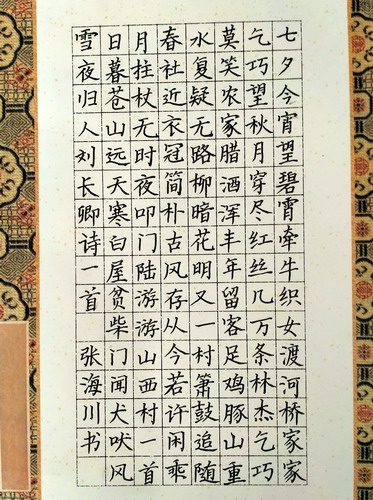 七夕今宵望碧霄牵牛织女渡河桥家家
乞巧望秋月穿尽红丝几万条林杰乞巧
莫笑农家腊酒浑丰年留客足鸡豚山重
水复疑无路柳暗花明又一村箫鼓追随
春社近衣冠简朴古风存从今若许闲乘
月拄杖无时夜叩门陆游游山西村一首
日暮苍山远天寒白屋贫柴门闻犬吠风
雪夜归人刘长卿诗一首 张海川书